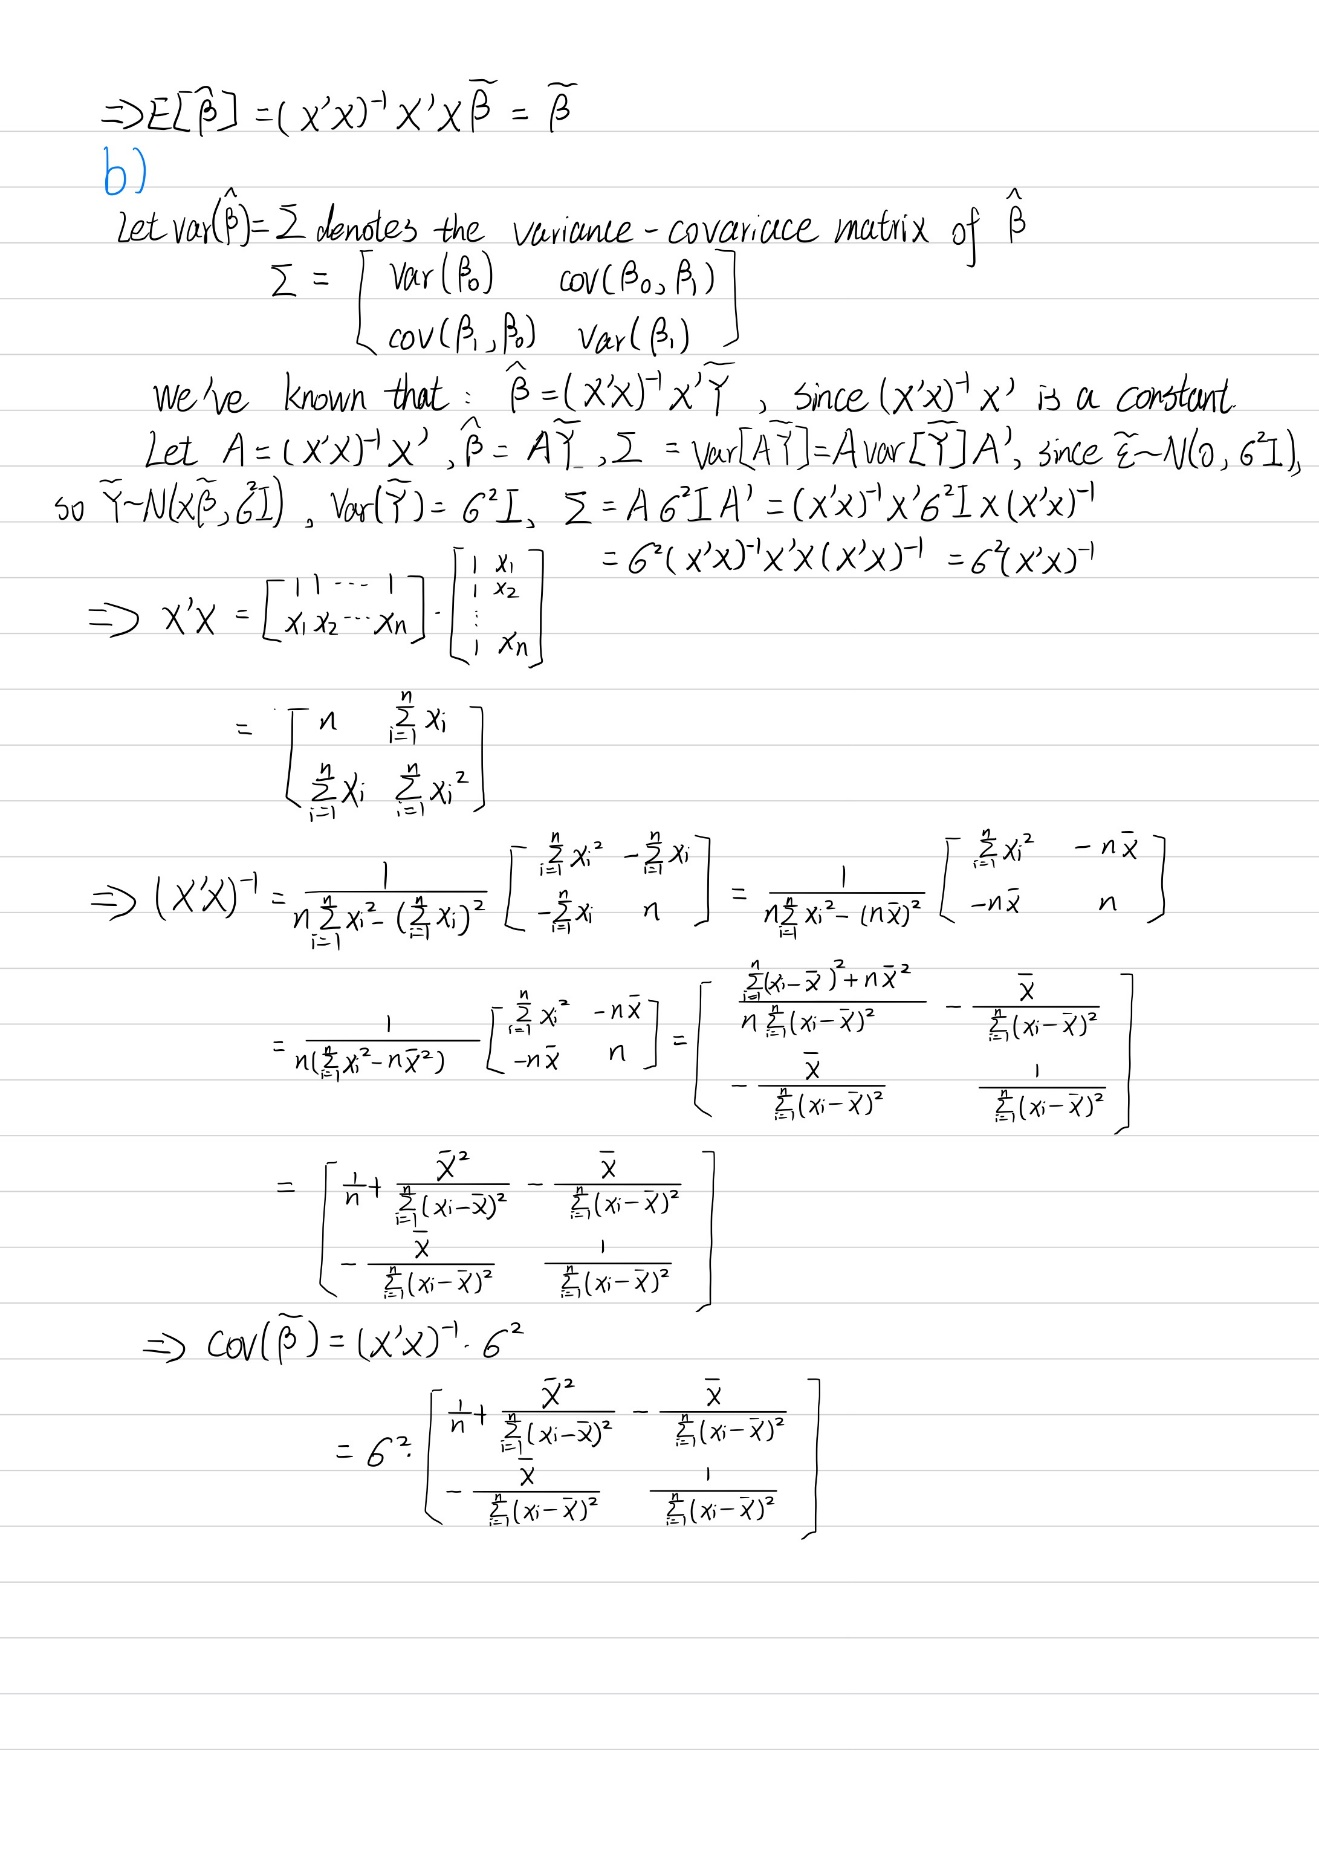 ⇒ E[β̂] = (X'X)⁻¹ X'X β̃ = β̃
b)
Let var(β̂) = Σ denotes the variance-covariace matrix of β̂
Σ = [ var(β₀) cov(β₀, β₁)
cov(β₁, β₀) var(β₁) ]
We've known that : β̂ = (X'X)⁻¹ X' Ỹ , since (X'X)⁻¹ X' is a constant.
Let A = (X'X)⁻¹ X' , β̂ = AỸ , Σ = var[AỸ] = A var[Ỹ] A', since ε̃ ~ N(0, 6²I),
so Ỹ ~ N(Xβ̃, 6²I) , Var(Ỹ) = 6²I, Σ = A 6² I A' = (X'X)⁻¹ X' 6² I X (X'X)⁻¹
= 6² (X'X)⁻¹ X'X (X'X)⁻¹ = 6² (X'X)⁻¹
⇒ X'X = [ 1 1 ⋯ 1 ; x₁ x₂ ⋯ xₙ ] · [ 1 x₁ ; 1 x₂ ; ⋮ ; 1 xₙ ]
= [ n Σⁿᵢ₌₁ xᵢ
Σⁿᵢ₌₁ xᵢ Σⁿᵢ₌₁ xᵢ² ]
⇒ (X'X)⁻¹ = 1 / (n Σⁿᵢ₌₁ xᵢ² − (Σⁿᵢ₌₁ xᵢ)²) [ Σⁿᵢ₌₁ xᵢ² −Σⁿᵢ₌₁ xᵢ ; −Σⁿᵢ₌₁ xᵢ n ] = 1 / (n Σⁿᵢ₌₁ xᵢ² − (n x̄)²) [ Σⁿᵢ₌₁ xᵢ² −n x̄ ; −n x̄ n ]
= 1 / (n(Σⁿᵢ₌₁ xᵢ² − n x̄²)) [ Σⁿᵢ₌₁ xᵢ² −n x̄ ; −n x̄ n ] = [ (Σⁿᵢ₌₁ (xᵢ − x̄)² + n x̄²) / (n Σⁿᵢ₌₁ (xᵢ − x̄)²) − x̄ / Σⁿᵢ₌₁ (xᵢ − x̄)² ; − x̄ / Σⁿᵢ₌₁ (xᵢ − x̄)² 1 / Σⁿᵢ₌₁ (xᵢ − x̄)² ]
= [ 1/n + x̄² / Σⁿᵢ₌₁ (xᵢ − x̄)² − x̄ / Σⁿᵢ₌₁ (xᵢ − x̄)²
− x̄ / Σⁿᵢ₌₁ (xᵢ − x̄)² 1 / Σⁿᵢ₌₁ (xᵢ − x̄)² ]
⇒ Cov(β̃) = (X'X)⁻¹ · 6²
= 6² · [ 1/n + x̄² / Σⁿᵢ₌₁ (xᵢ − x̄)² − x̄ / Σⁿᵢ₌₁ (xᵢ − x̄)²
− x̄ / Σⁿᵢ₌₁ (xᵢ − x̄)² 1 / Σⁿᵢ₌₁ (xᵢ − x̄)² ]